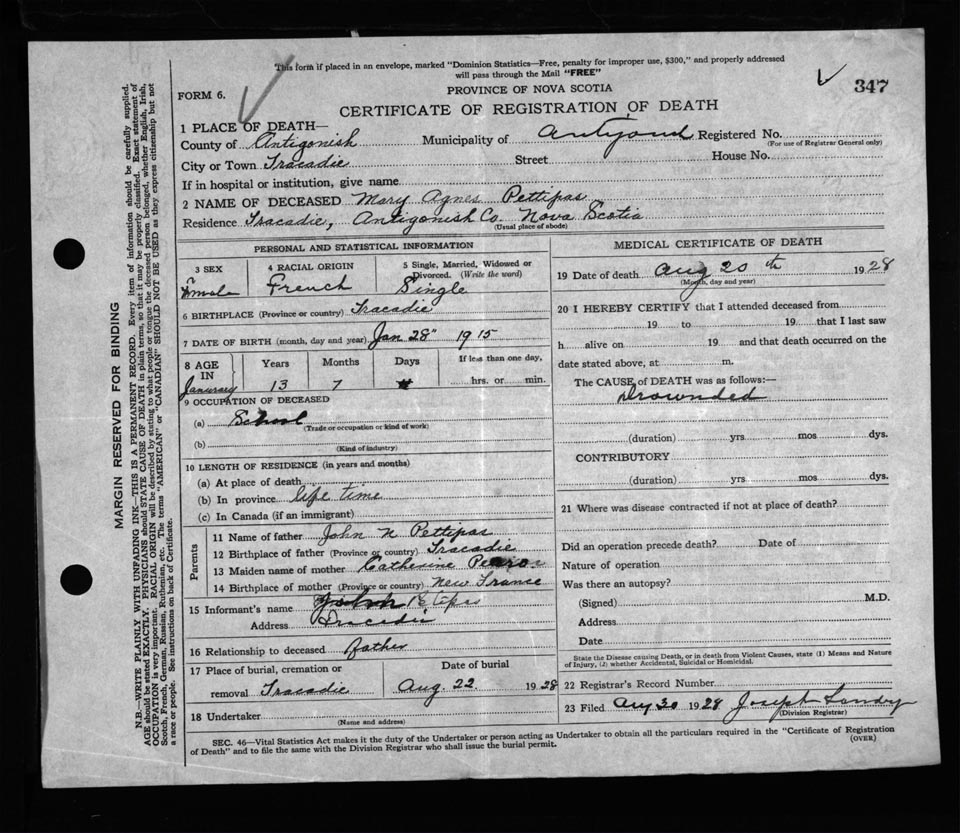 This form if placed in an envelope, marked "Dominion Statistics—Free, penalty for improper use, $300," and properly addressed
will pass through the Mail "FREE"
PROVINCE OF NOVA SCOTIA
347
FORM 6.
CERTIFICATE OF REGISTRATION OF DEATH
1 PLACE OF DEATH—
County of Antigonish Municipality of Registered No.
(For use of Registrar General only)
City or Town Tracadie Street House No.
If in hospital or institution, give name
2 NAME OF DECEASED Mary Agnes Pettipas
Residence Tracadie, Antigonish Co. Nova Scotia
(Usual place of abode)
PERSONAL AND STATISTICAL INFORMATION
3 SEX
Female
4 RACIAL ORIGIN
French
5 Single, Married, Widowed or
Divorced. (Write the word)
Single
6 BIRTHPLACE (Province or country) Tracadie
7 DATE OF BIRTH (month, day and year) Jan 28" 1915
8 AGE
IN
Years Months Days If less than one day,
13 7 hrs. or min.
9 OCCUPATION OF DECEASED
(a) School
(Trade or occupation or kind of work)
(b)
(Kind of industry)
10 LENGTH OF RESIDENCE (in years and months)
(a) At place of death
(b) In province life time
(c) In Canada (if an immigrant)
Parents
11 Name of father John N Pettipas
12 Birthplace of father (Province or country) Tracadie
13 Maiden name of mother Catherine
14 Birthplace of mother (Province or country) New France
15 Informant's name
Address Tracadie
16 Relationship to deceased father
17 Place of burial, cremation or
removal Tracadie
Date of burial
Aug. 22 1928
18 Undertaker
(Name and address)
MEDICAL CERTIFICATE OF DEATH
19 Date of death Aug 20 th 1928
(Month, day and year)
20 I HEREBY CERTIFY that I attended deceased from
19 to 19 that I last saw
h alive on 19 and that death occurred on the
date stated above, at m.
The CAUSE of DEATH was as follows:—
Drownded
(duration) yrs mos dys.
CONTRIBUTORY
(duration) yrs mos dys.
21 Where was disease contracted if not at place of death?
Did an operation precede death? Date of
Nature of operation
Was there an autopsy?
(Signed) M.D.
Address
Date
State the Disease causing Death, or in death from Violent Causes, state (1) Means and Nature
of Injury, (2) whether Accidental, Suicidal or Homicidal.
22 Registrar's Record Number
23 Filed Aug 20 1928 Joseph Landry
(Division Registrar)
SEC. 46—Vital Statistics Act makes it the duty of the Undertaker or person acting as Undertaker to obtain all the particulars required in the "Certificate of Registration
of Death" and to file the same with the Division Registrar who shall issue the burial permit.
(OVER)
MARGIN RESERVED FOR BINDING
N.B.—WRITE PLAINLY WITH UNFADING INK—THIS IS A PERMANENT RECORD. Every item of information should be carefully supplied.
AGE should be stated EXACTLY. PHYSICIANS should STATE CAUSE OF DEATH in plain terms, so that it may be properly classified. Exact statement of
OCCUPATION is very important. RACIAL ORIGIN will be described by stating to what people or tongue the deceased person belonged, whether English, Irish,
Scotch, French, German, Russian, Ruthenian, etc. The terms "AMERICAN" or "CANADIAN" SHOULD NOT BE USED as they express citizenship but not
a race or people. See instructions on back of Certificate.